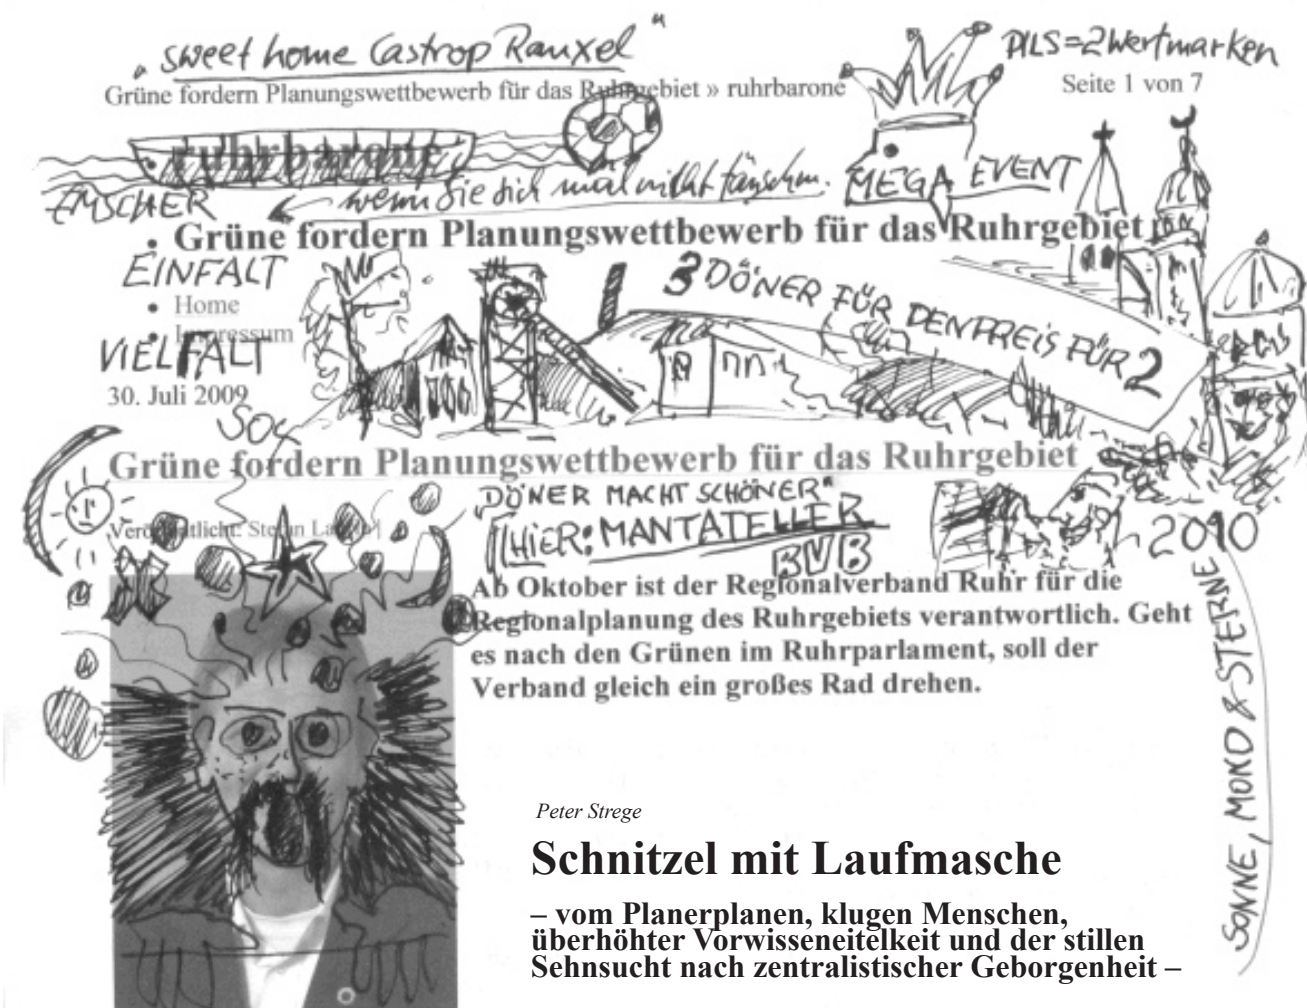 „sweet home Castrop Rauxel“
PILS=2Wertmarken
Grüne fordern Planungswettbewerb für das Ruhrgebiet » ruhrbarone
Seite 1 von 7
ruhrbarone
wenn Sie sich mal nicht täuschen.
MEGA EVENT
EMSCHER
• Grüne fordern Planungswettbewerb für das Ruhrgebiet
EINFALT
• Home
• Impressum
3 DÖNER FÜR DEN PREIS FÜR 2
VIELFALT
30. Juli 2009
Grüne fordern Planungswettbewerb für das Ruhrgebiet
DÖNER MACHT SCHÖNER"
Veröffentlicht: Stefan
HIER: MANTATELLER
BVB
2010
Ab Oktober ist der Regionalverband Ruhr für die
Regionalplanung des Ruhrgebiets verantwortlich. Geht
es nach den Grünen im Ruhrparlament, soll der
Verband gleich ein großes Rad drehen.
SONNE, MOND & STERNE
Peter Strege
Schnitzel mit Laufmasche
– vom Planerplanen, klugen Menschen,
überhöhter Vorwisseneitelkeit und der stillen
Sehnsucht nach zentralistischer Geborgenheit –